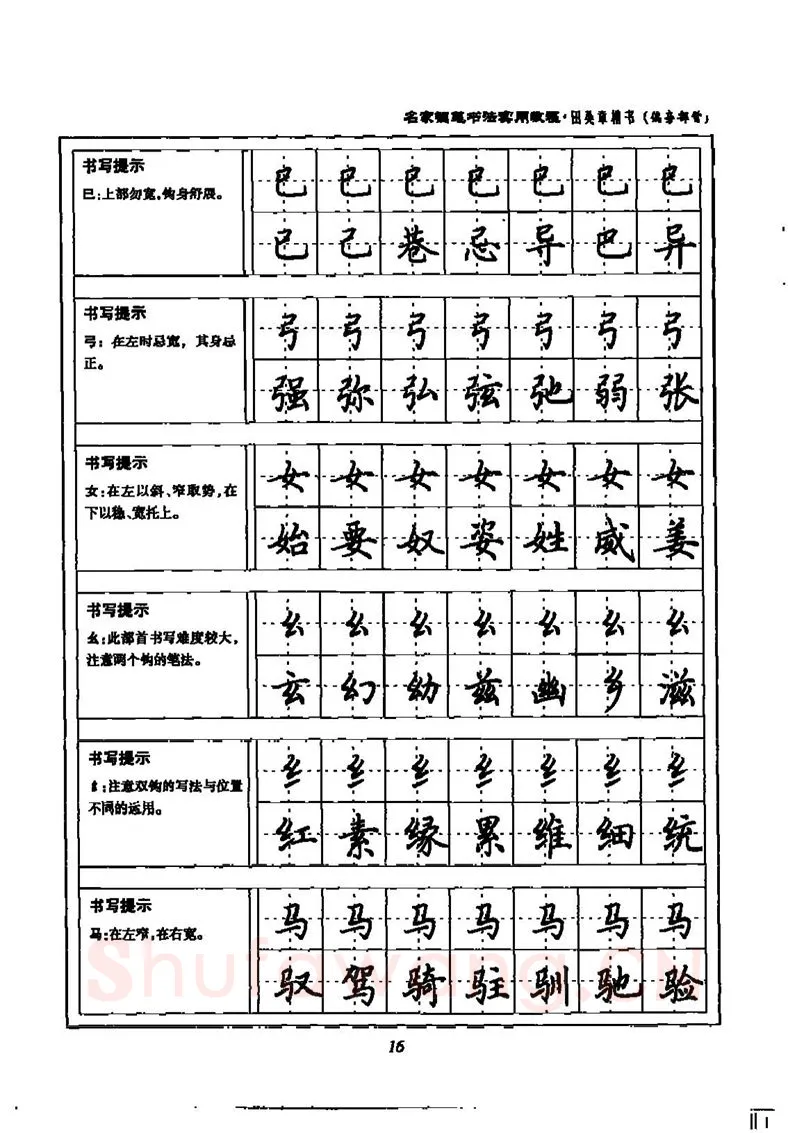 名家钢笔书法实用教程·田英章楷书(偏旁部首)
书写提示
巳:上部勿宽,钩身舒展。
巳 巳 巳 巳 巳 巳 巳
已 己 巷 忌 导 巴 异
书写提示
弓:在左时忌宽,其身忌
正。
弓 弓 弓 弓 弓 弓 弓
强 弥 弘 弦 弛 弱 张
书写提示
女:在左以斜、窄取势,在
下以稳、宽托上。
女 女 女 女 女 女 女
始 要 奴 姿 姓 威 姜
书写提示
幺:此部首书写难度较大,
注意两个钩的笔法。
幺 幺 幺 幺 幺 幺 幺
玄 幻 幼 兹 幽 乡 滋
书写提示
纟:注意双钩的写法与位置
不同的运用。
纟 纟 纟 纟 纟 纟 纟
红 素 缘 累 维 细 统
书写提示
马:在左窄,在右宽。
马 马 马 马 马 马 马
驭 驾 骑 驻 驯 驰 验
Shufawang.CN
16